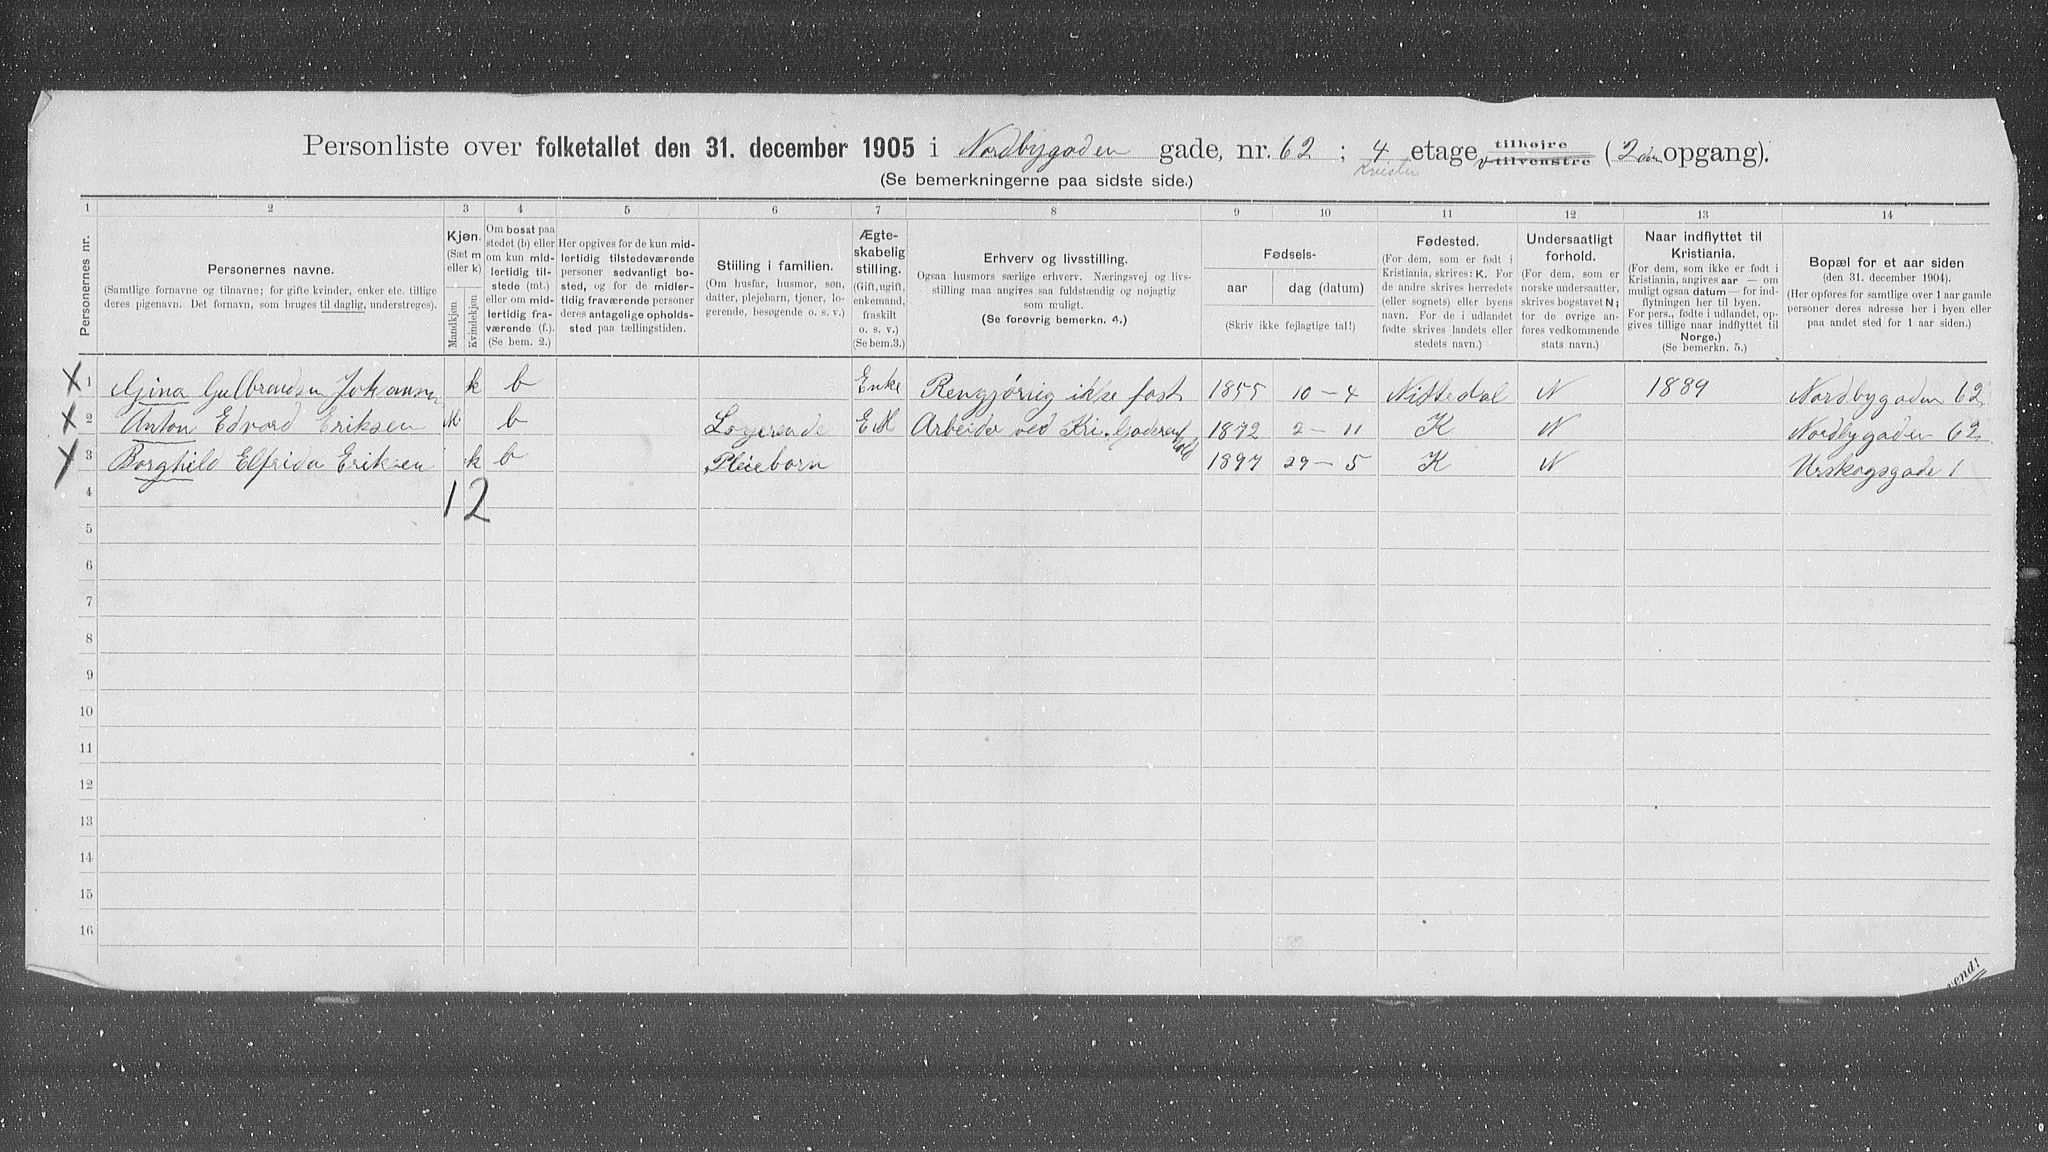 Personliste over folketallet den 31. december 1905 i Nordbygaden gade, nr. 62 ; 4 etage tilhøjre tilvenstre ( 2den opgang).
Kvister
(Se bemerkningerne paa sidste side.)
1 2 3 4 5 6 7 8 9 10 11 12 13 14
Personernes nr.
Personernes navne.
(Samtlige fornavne og tilnavne; for gifte kvinder, enker etc. tillige
deres pigenavn. Det fornavn, som bruges til daglig, understreges).
Kjøn.
(Sæt m
eller k)
Mandkjøn
Kvindekjøn
Om bosat paa
stedet (b) eller
om kun mid-
lertidig til-
stede (mt.)
eller om mid-
lertidig fra-
værende (f.).
(Se bem. 2.)
Her opgives for de kun mid-
lertidig tilstedeværende
personer sedvanligt bo-
sted, og for de midler-
tidig fraværende personer
deres antagelige opholds-
sted paa tællingstiden.
Stilling i familien.
(Om husfar, husmor, søn,
datter, plejebarn, tjener, lo-
gerende, besøgende o. s. v.)
Ægte-
skabelig
stilling.
(Gift, ugift,
enkemand,
fraskilt
o. s. v.)
(Se bem.3.)
Erhverv og livsstilling.
Ogsaa husmors særlige erhverv. Næringsvej og livs-
stilling maa angives saa fuldstændig og nøjagtig
som muligt.
(Se forøvrig bemerkn. 4.)
Fødsels-
aar dag (datum)
(Skriv ikke fejlagtige tal!)
Fødested.
(For dem, som er født i
Kristiania, skrives: K. For
de andre skrives herredets
(eller sognets) eller byens
navn. For de i udlandet
fødte skrives landets eller
stedets navn.)
Undersaatligt
forhold.
(For dem, som er
norske undersaatter,
skrives bogstavet N;
for de øvrige an-
føres vedkommende
stats navn.)
Naar indflyttet til
Kristiania.
(For dem, som ikke er født i
Kristiania, angives aar — om
muligt ogsaa datum — for ind-
flytningen her til byen.
For pers., fødte i udlandet, op-
gives tillige naar indflyttet til
Norge.)
(Se bemerkn. 5.)
Bopæl for et aar siden
(den 31. december 1904).
(Her opføres for samtlige over 1 aar gamle
personer deres adresse her i byen eller
paa andet sted for 1 aar siden.)
X 1 Gina Gulbrandsen Johansen k b Enke Rengjøring ikke fast 1855 10 — 4 Nittedal N 1889 Nordbygaden 62
X 2 Anton Edvard Eriksen m b Logerende E M Arbeider ved Kr.ia Gaderenhold 1872 2 — 11 K N Nordbygaden 62
3 Borghild Elfrida Eriksen k b Pleiebarn 1897 29 — 5 K N Urskogsgade 1
4 1 2
5
6
7
8
9
10
11
12
13
14
15
16
vend!